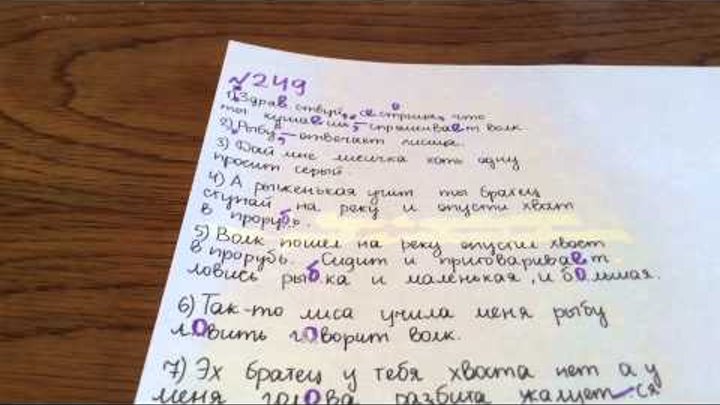 №249
1) Здравствуй, сестрица, что
ты кушаеши, – спрашивает волк
2) Рыбу, – отвечает лисица.
3) Дай мне лисичка хоть одну
просит серый.
4) А рыженькая учит ты братец
ступай на реку и опусти хвост
в прорубь.
5) Волк пошел на реку опустил хвост
в прорубь. Сидит и приговаривает
ловись рыбка и маленькая, и большая.
6) Так-то лиса учила меня рыбу
ловить говорит волк.
7) Эх братец у тебя хвоста нет а у
меня голова разбита жалуется